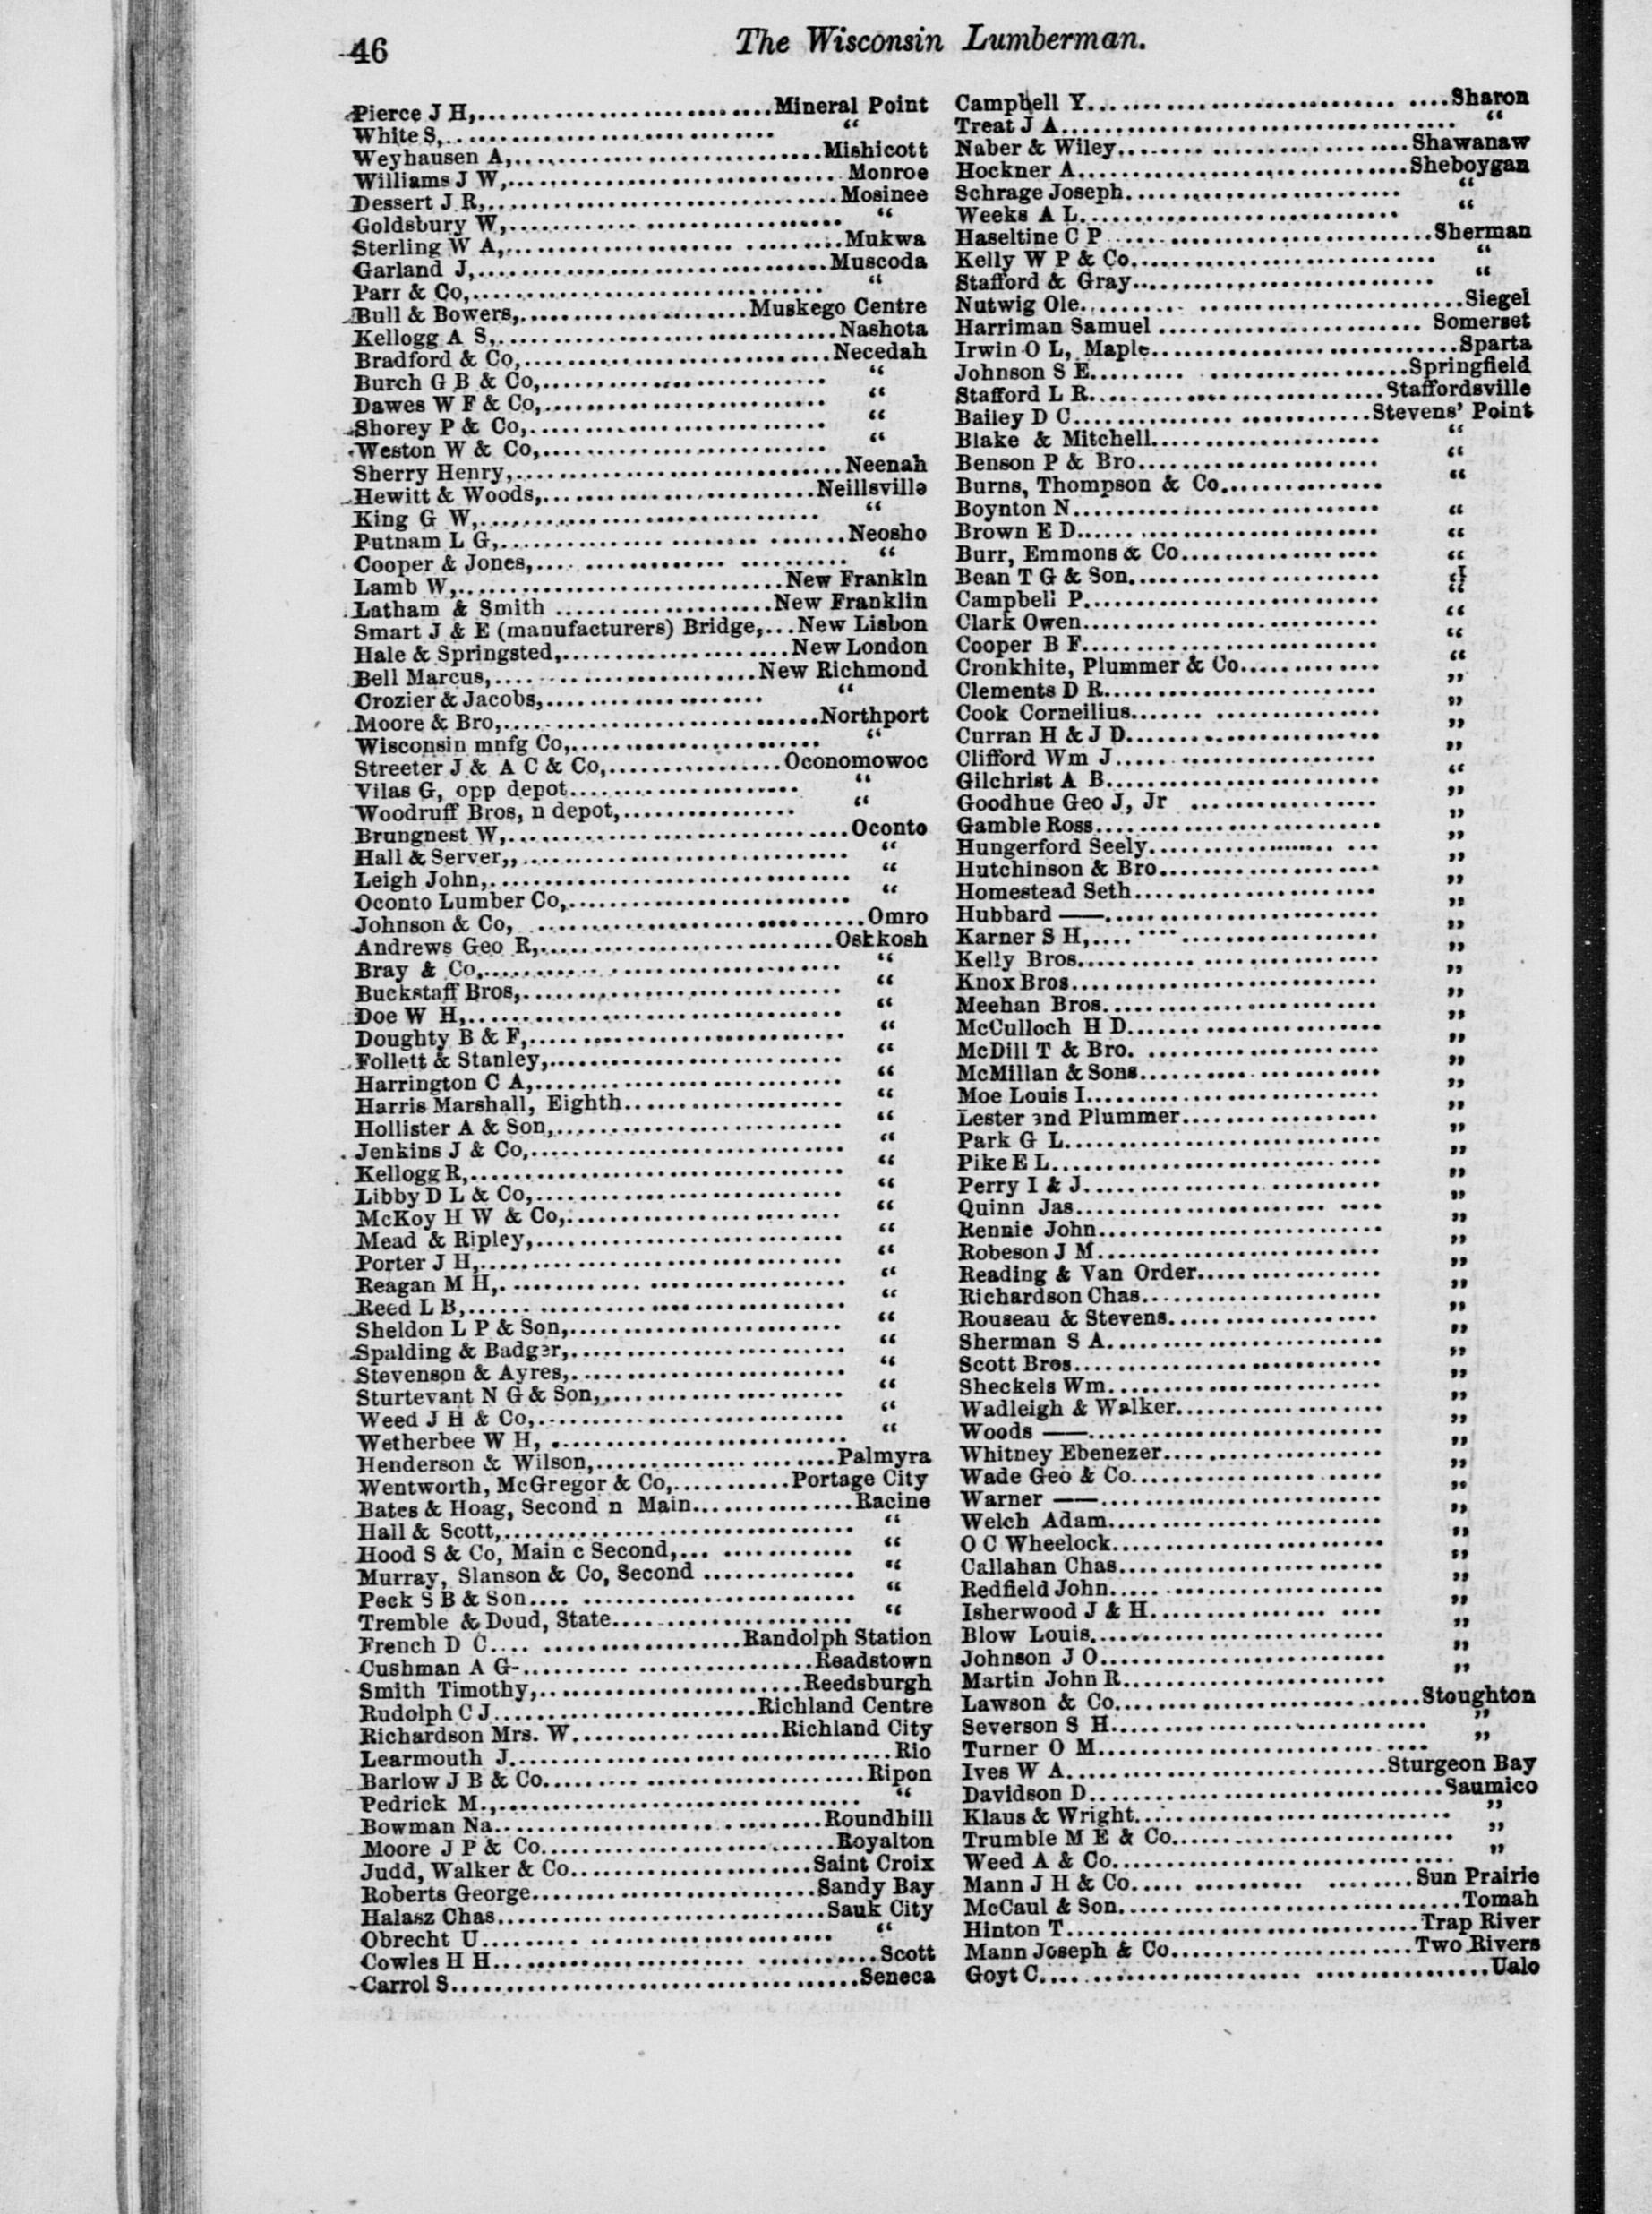 46
The Wisconsin Lumberman.
Pierce J H, Mineral Point
White S, "
Weyhausen A, Mishicott
Williams J W, Monroe
Dessert J R, Mosinee
Goldsbury W, "
Sterling W A, Mukwa
Garland J, Muscoda
Parr & Co, "
Bull & Bowers, Muskego Centre
Kellogg A S, Nashota
Bradford & Co, Necedah
Burch G B & Co, "
Dawes W F & Co, "
Shorey P & Co, "
Weston W & Co, "
Sherry Henry, Neenah
Hewitt & Woods, Neillsville
King G W, "
Putnam L G, Neosho
Cooper & Jones, "
Lamb W, New Frankln
Latham & Smith New Franklin
Smart J & E (manufacturers) Bridge, New Lisbon
Hale & Springsted, New London
Bell Marcus, New Richmond
Crozier & Jacobs, "
Moore & Bro, Northport
Wisconsin mnfg Co, "
Streeter J & A C & Co, Oconomowoc
Vilas G, opp depot "
Woodruff Bros, n depot, "
Brungnest W, Oconto
Hall & Server,, "
Leigh John, "
Oconto Lumber Co, "
Johnson & Co, Omro
Andrews Geo R, Oskkosh
Bray & Co, "
Buckstaff Bros, "
Doe W H, "
Doughty B & F, "
Follett & Stanley, "
Harrington C A, "
Harris Marshall, Eighth "
Hollister A & Son, "
Jenkins J & Co, "
Kellogg R, "
Libby D L & Co, "
McKoy H W & Co, "
Mead & Ripley, "
Porter J H, "
Reagan M H, "
Reed L B, "
Sheldon L P & Son, "
Spalding & Badger, "
Stevenson & Ayres, "
Sturtevant N G & Son, "
Weed J H & Co, "
Wetherbee W H, "
Henderson & Wilson, Palmyra
Wentworth, McGregor & Co, Portage City
Bates & Hoag, Second n Main Racine
Hall & Scott, "
Hood S & Co, Main c Second, "
Murray, Slanson & Co, Second "
Peck S B & Son "
Tremble & Doud, State "
French D C Randolph Station
Cushman A G- Readstown
Smith Timothy, Reedsburgh
Rudolph C J Richland Centre
Richardson Mrs. W Richland City
Learmouth J Rio
Barlow J B & Co Ripon
Pedrick M., "
Bowman Na Roundhill
Moore J P & Co Royalton
Judd, Walker & Co Saint Croix
Roberts George Sandy Bay
Halasz Chas Sauk City
Obrecht U "
Cowles H H Scott
Carrol S Seneca
Campbell Y Sharon
Treat J A "
Naber & Wiley Shawanaw
Hockner A Sheboygan
Schrage Joseph "
Weeks A L "
Haseltine C P Sherman
Kelly W P & Co "
Stafford & Gray "
Nutwig Ole Siegel
Harriman Samuel Somerset
Irwin O L, Maple Sparta
Johnson S E Springfield
Stafford L R Staffordsville
Bailey D C Stevens' Point
Blake & Mitchell "
Benson P & Bro "
Burns, Thompson & Co "
Boynton N "
Brown E D "
Burr, Emmons & Co "
Bean T G & Son "
Campbell P "
Clark Owen "
Cooper B F "
Cronkhite, Plummer & Co "
Clements D R „
Cook Corneilius „
Curran H & J D „
Clifford Wm J „
Gilchrist A B "
Goodhue Geo J, Jr „
Gamble Ross „
Hungerford Seely „
Hutchinson & Bro „
Homestead Seth „
Hubbard —— „
Karner S H, „
Kelly Bros „
Knox Bros „
Meehan Bros „
McCulloch H D „
McDill T & Bro. „
McMillan & Sons „
Moe Louis I „
Lester and Plummer „
Park G L „
Pike E L „
Perry I & J „
Quinn Jas „
Rennie John „
Robeson J M „
Reading & Van Order „
Richardson Chas „
Rouseau & Stevens „
Sherman S A „
Scott Bros „
Sheckels Wm „
Wadleigh & Walker „
Woods —— „
Whitney Ebenezer „
Wade Geo & Co „
Warner —— „
Welch Adam „
O C Wheelock „
Callahan Chas „
Redfield John „
Isherwood J & H „
Blow Louis „
Johnson J O „
Martin John R „
Lawson & Co Stoughton
Severson S H „
Turner O M „
Ives W A Sturgeon Bay
Davidson D Saumico
Klaus & Wright „
Trumble M E & Co „
Weed A & Co „
Mann J H & Co Sun Prairie
McCaul & Son Tomah
Hinton T Trap River
Mann Joseph & Co Two Rivers
Goyt C Ualo